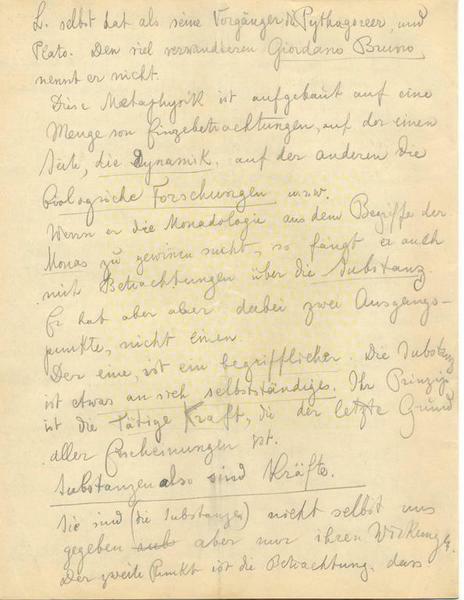 L. selbst hat als seine Vorgänger die Pythagoreer, und
Plato. Den viel verwandteren Giordano Bruno,
nennt er nicht.
Diese Metaphysik ist aufgebaut auf eine
Menge von Einzelbetrachtungen, auf der einen
Seite, die Dynamik, auf der anderen die
biologische Forschungen usw.
Wenn er die Monadologie aus dem Begriffe der
Monas zu gewinnen sucht, so fängt er auch
mit Betrachtungen über die Substanz.
Er hat aber aber dabei zwei Ausgangs-
punkte, nicht einen.
Der eine, ist ein begrifflicher. Die Substanz
ist etwas an sich selbstständiges. Ihr Prinzip
ist die tätige Kraft, die der letzte Grund
aller Erscheinungen ist.
Substanzen also sind Kräfte.
Sie sind (die Substanzen) nicht selbst uns
gegeben aber nur ihren Wirkungen.
Der zweite Punkt ist die Betrachtung, dass